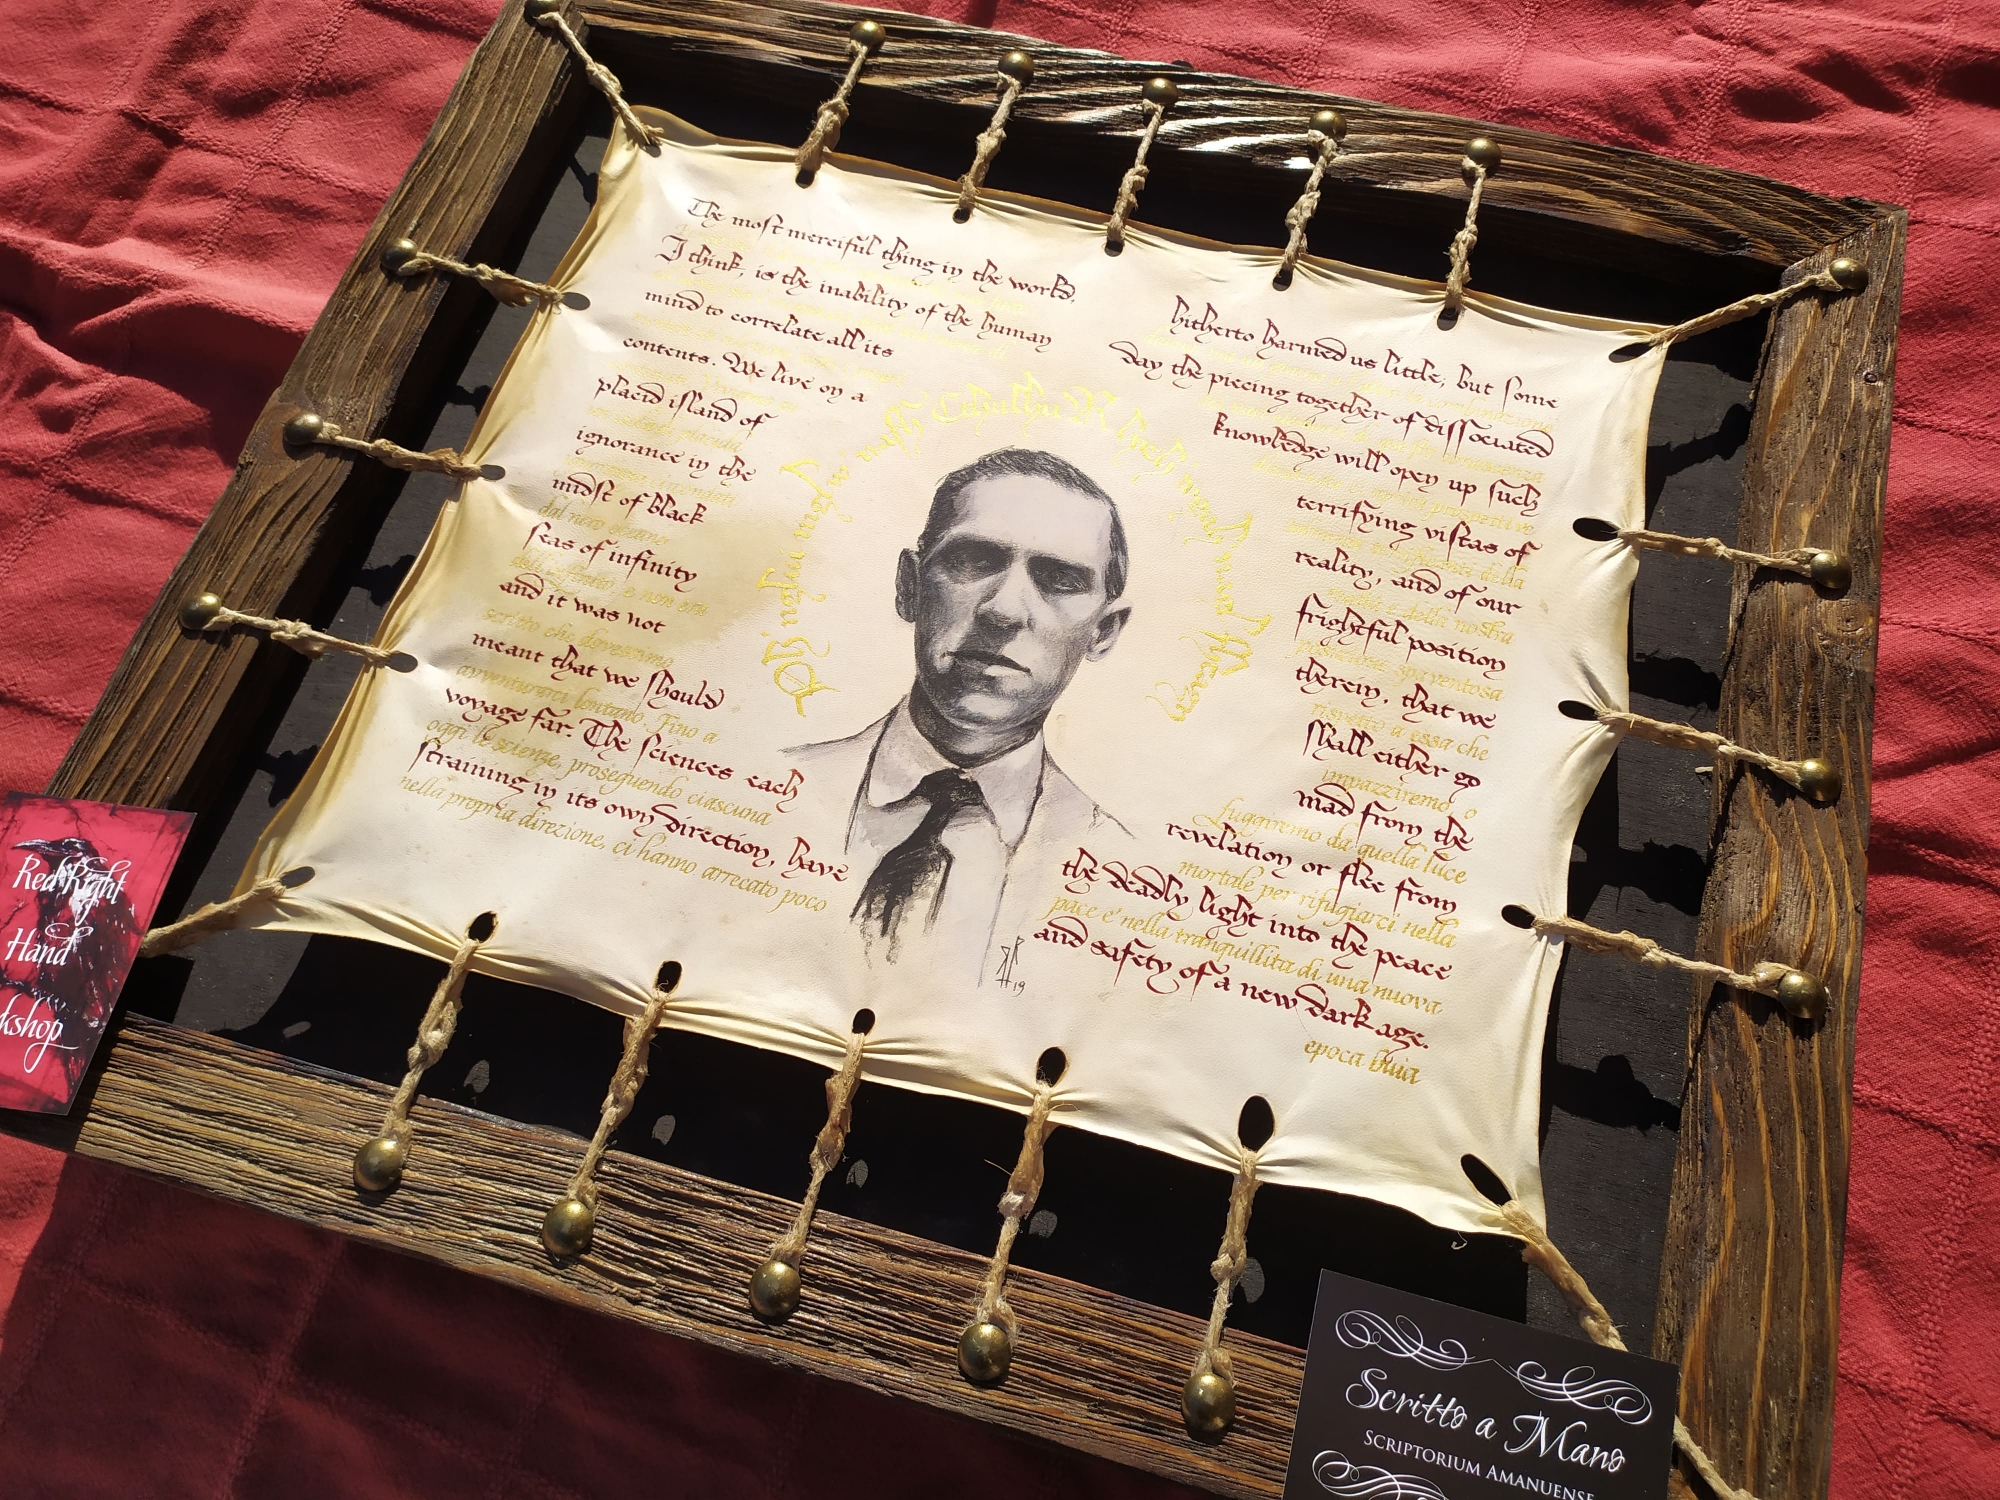 The most merciful thing in the world,
I think, is the inability of the human
mind to correlate all its
contents. We live on a
placid island of
ignorance in the
midst of black
dal nero oceano
seas of infinity
dell'infinito, e non era
and it was not
scritto che dovessimo
meant that we should
avventurarci lontano. Fino a
voyage far. The sciences each
oggi le scienze, proseguendo ciascuna
straining in its own direction, have
nella propria direzione, ci hanno arrecato poco
hitherto harmed us little; but some
day the piecing together of dissociated
knowledge will open up such
terrifying vistas of
reality, and of our
e della nostra
frightful position
posizione spaventosa
therein, that we
rispetto a essa che
shall either go
impazziremo o
mad from the
fuggiremo da quella luce
revelation or flee from
mortale per rifugiarci nella
the deadly light into the peace
pace e nella tranquillità di una nuova
and safety of a new dark age.
epoca buia
Ph'nglui mglw'nafh Cthulhu R'lyeh wgah'nagl fhtagn
19
Red Right
Hand
kshop
Scritto a Mano
SCRIPTORIUM AMANUENSE